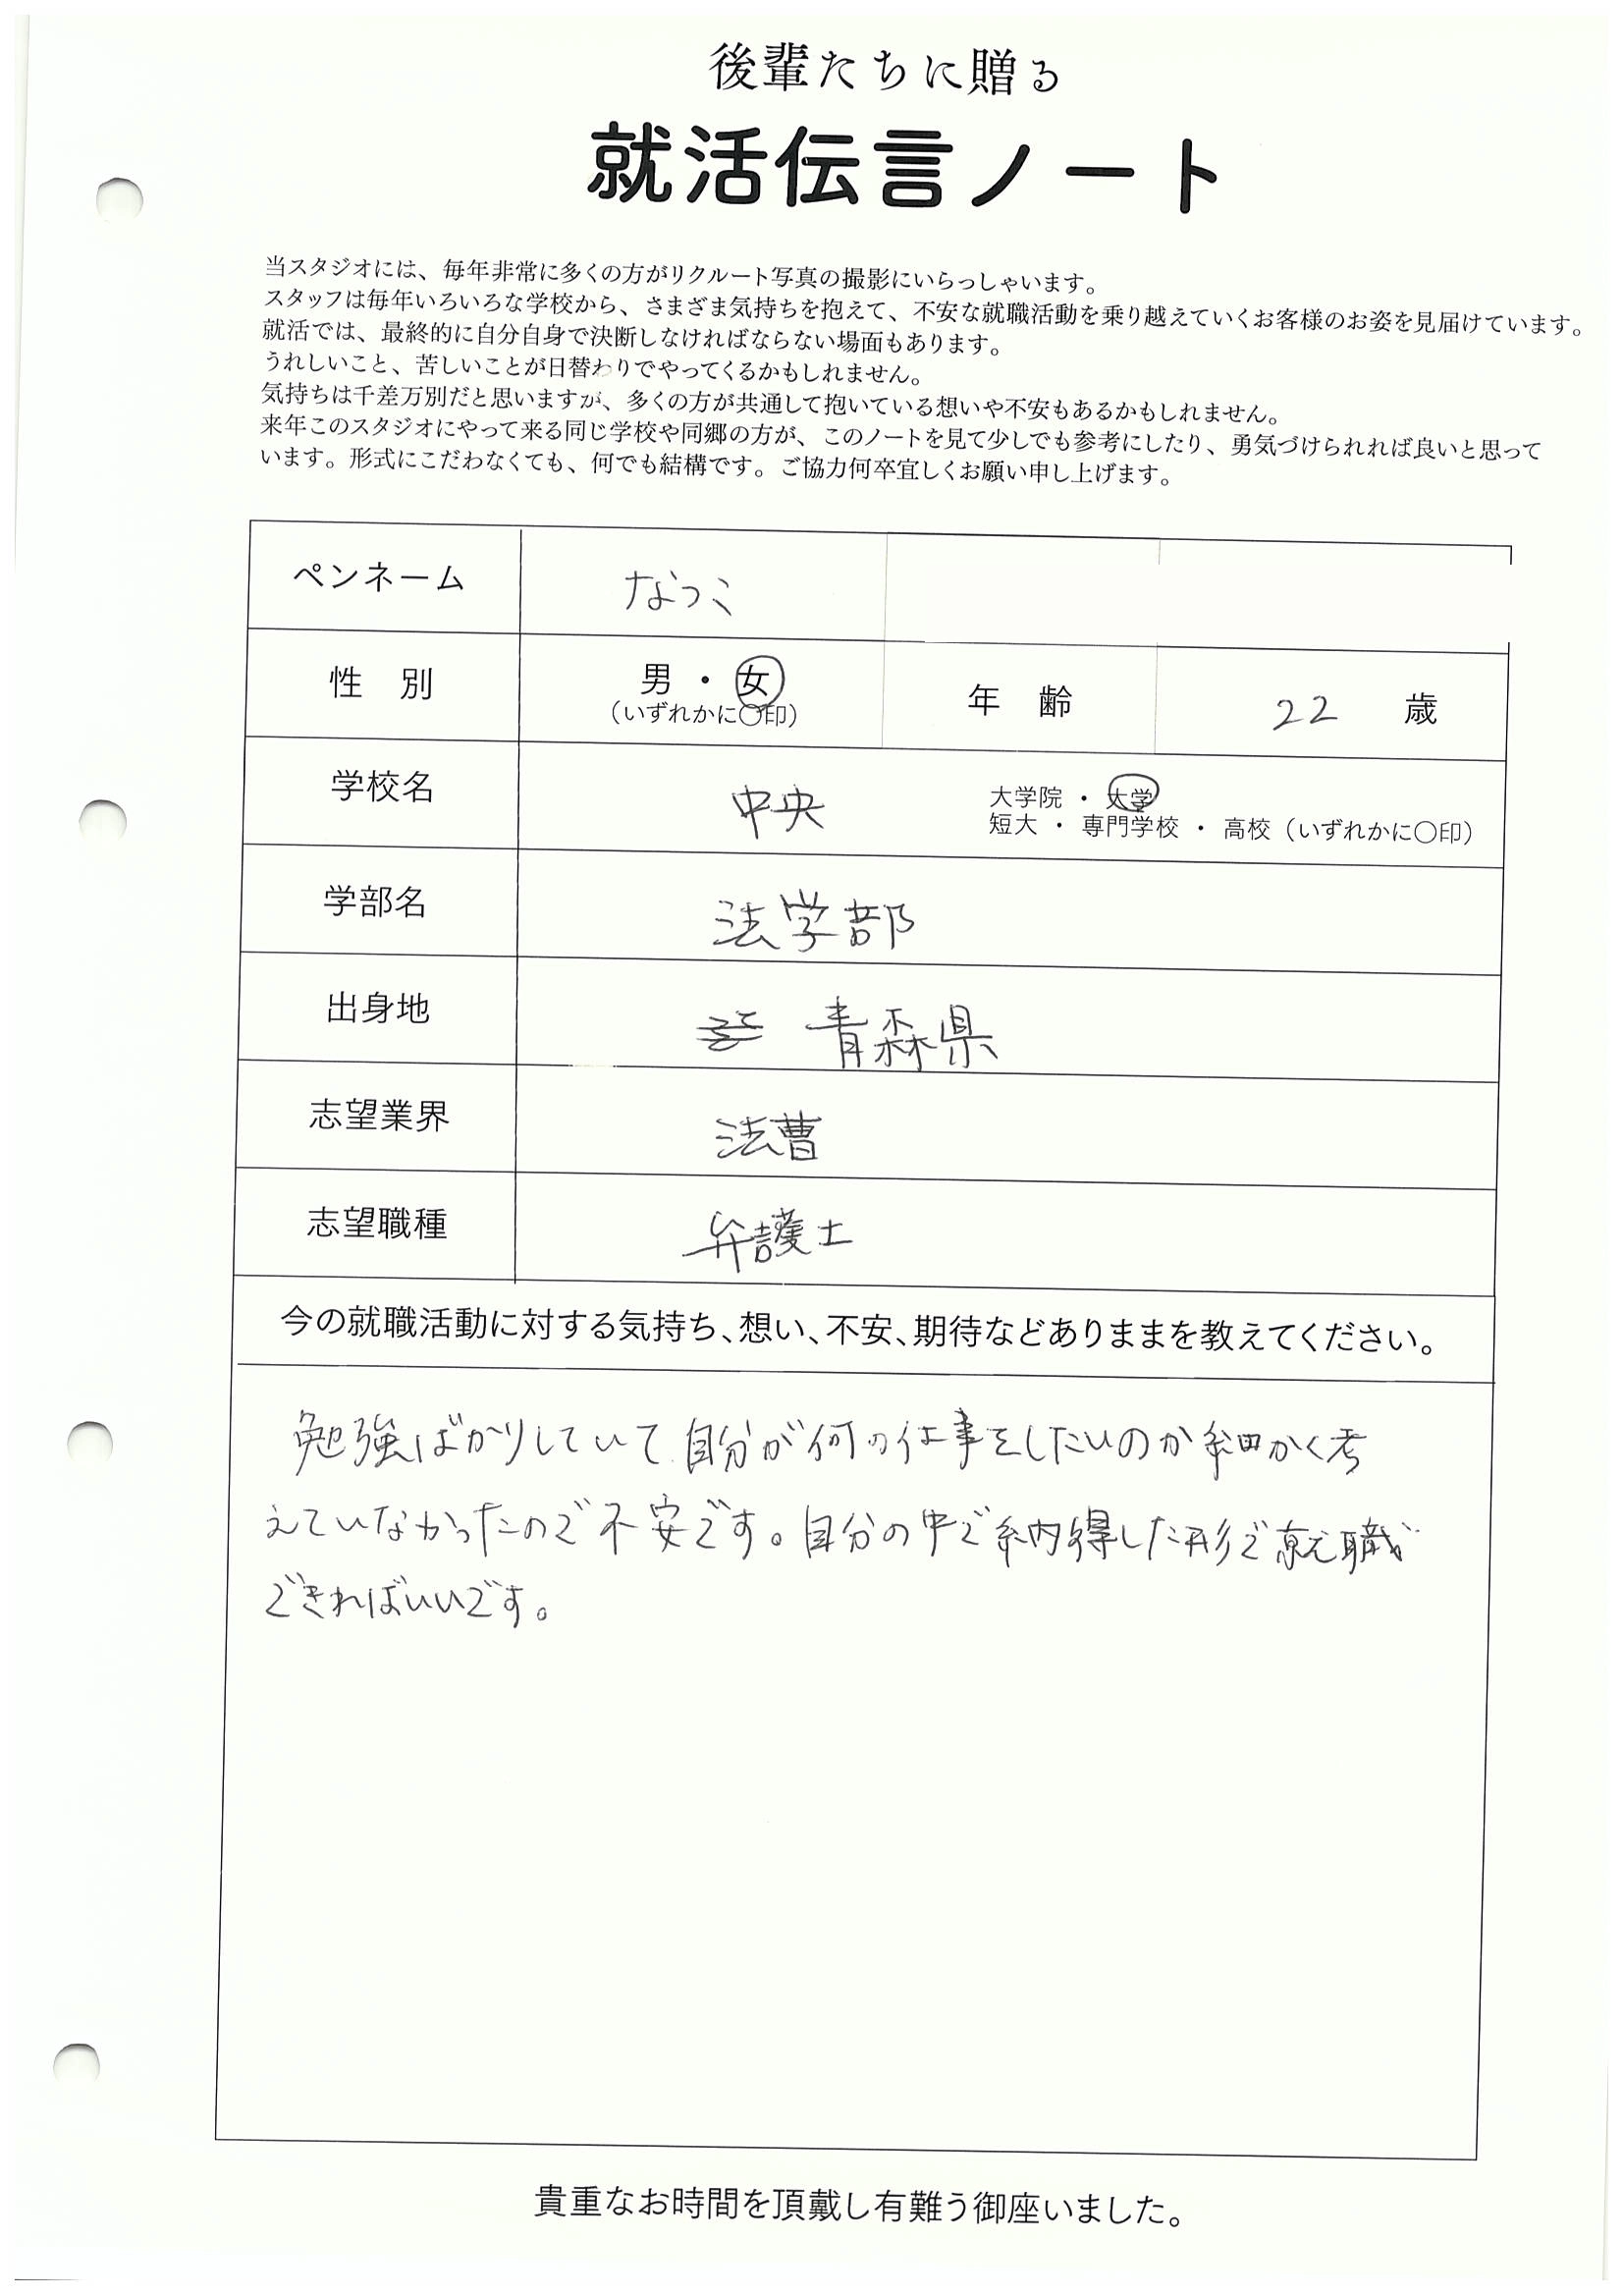 後輩たちに贈る
就活伝言ノート
当スタジオには、毎年非常に多くの方がリクルート写真の撮影にいらっしゃいます。
スタッフは毎年いろいろな学校から、さまざま気持ちを抱えて、不安な就職活動を乗り越えていくお客様のお姿を見届けています。
就活では、最終的に自分自身で決断しなければならない場面もあります。
うれしいこと、苦しいことが日替わりでやってくるかもしれません。
気持ちは千差万別だと思いますが、多くの方が共通して抱いている想いや不安もあるかもしれません。
来年このスタジオにやって来る同じ学校や同郷の方が、このノートを見て少しでも参考にしたり、勇気づけられれば良いと思って
います。形式にこだわなくても、何でも結構です。ご協力何卒宜しくお願い申し上げます。
ペンネーム なつこ
性 別 男 ・ 女 年 齢 22 歳
（いずれかに〇印）
学校名 中央 大学院 ・ 大学
短大 ・ 専門学校 ・ 高校（いずれかに〇印）
学部名 法学部
出身地 青森県
志望業界 法曹
志望職種 弁護士
今の就職活動に対する気持ち、想い、不安、期待などありままを教えてください。
勉強ばかりしていて自分が何の仕事をしたいのか細かく考
えていなかったので不安です。自分の中で納得した形で就職が
できればいいです。
貴重なお時間を頂戴し有難う御座いました。